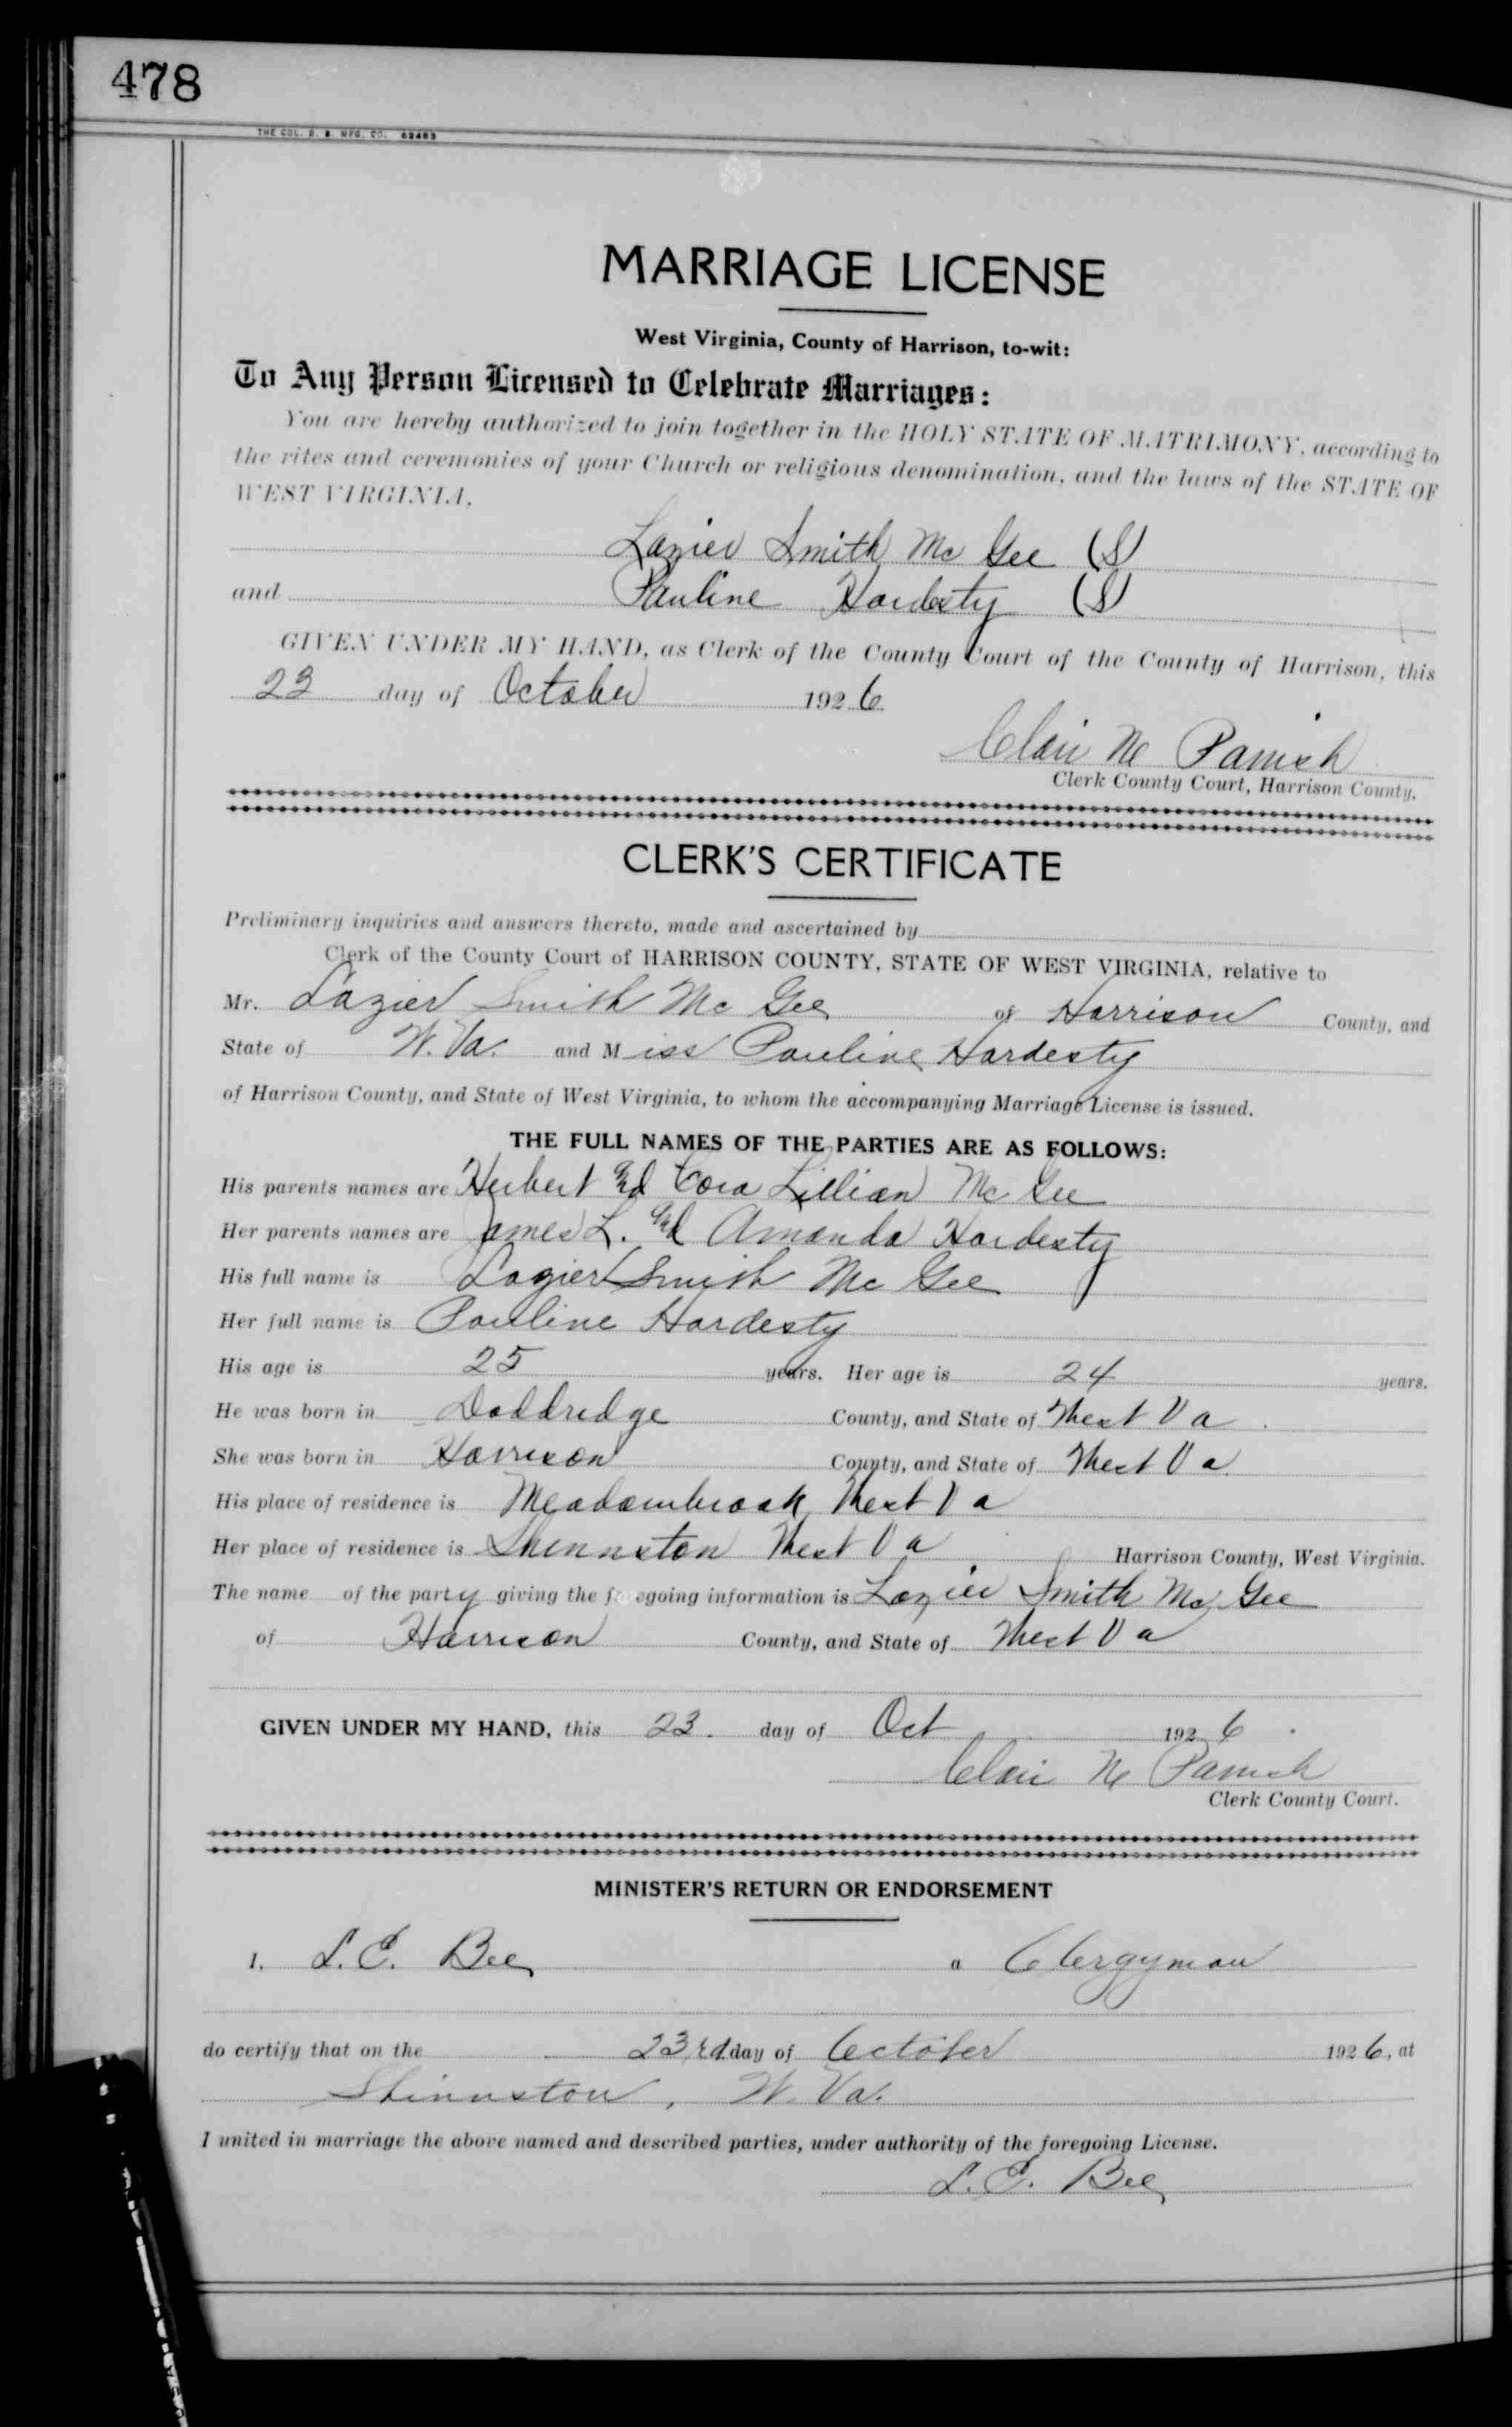 478
THE COL. B. B. MFG. CO. 62463
MARRIAGE LICENSE
West Virginia, County of Harrison, to-wit:
To Any Person Licensed to Celebrate Marriages:
You are hereby authorized to join together in the HOLY STATE OF MATRIMONY, according to
the rites and ceremonies of your Church or religious denomination, and the laws of the STATE OF
WEST VIRGINIA,
Lazier Smith Mc Gee (S)
and Pauline Hardesty (S)
GIVEN UNDER MY HAND, as Clerk of the County Court of the County of Harrison, this
23 day of October 1926
Clair N Parrish
Clerk County Court, Harrison County.
CLERK'S CERTIFICATE
Preliminary inquiries and answers thereto, made and ascertained by
Clerk of the County Court of HARRISON COUNTY, STATE OF WEST VIRGINIA, relative to
Mr. Lazier Smith Mc Gee of Harrison County, and
State of W. Va. and Miss Pauline Hardesty
of Harrison County, and State of West Virginia, to whom the accompanying Marriage License is issued.
THE FULL NAMES OF THE PARTIES ARE AS FOLLOWS:
His parents names are Herbert and Cora Lillian Mc Gee
Her parents names are James L. and Amanda Hardesty
His full name is Lazier Smith Mc Gee
Her full name is Pauline Hardesty
His age is 25 years. Her age is 24 years.
He was born in Doddridge County, and State of West Va.
She was born in Harrison County, and State of West Va.
His place of residence is Meadowbrook, West Va
Her place of residence is Shinnston West Va Harrison County, West Virginia.
The name of the party giving the foregoing information is Lazier Smith Mc Gee
of Harrison County, and State of West Va
GIVEN UNDER MY HAND, this 23. day of Oct 1926.
Clair N Parrish
Clerk County Court.
MINISTER'S RETURN OR ENDORSEMENT
I, L. E. Bee, a Clergyman
do certify that on the 23rd day of October 1926, at
Shinnston, W. Va.
I united in marriage the above named and described parties, under authority of the foregoing License.
L. E. Bee